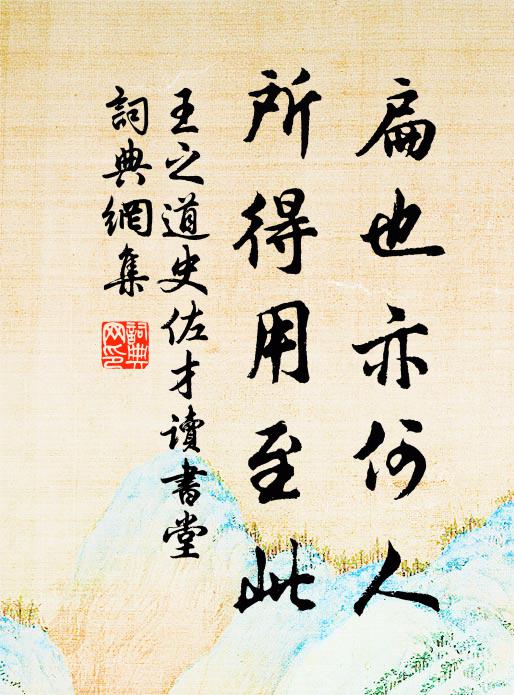 扁也亦何人
所得用至此
王之道史佐才讀書堂
詞典網集
詞典网印